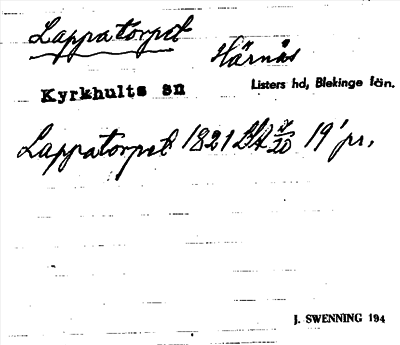 Lappatorpet
Härnäs
Kyrkhults sn
Listers hd, Blekinge län.
Lappatorpet 1821 19' pr.
J. SWENNING 194